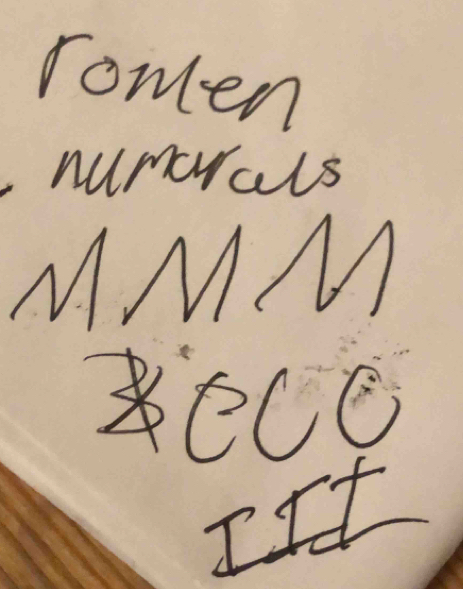 romen
numarals
MMM
CCC
III